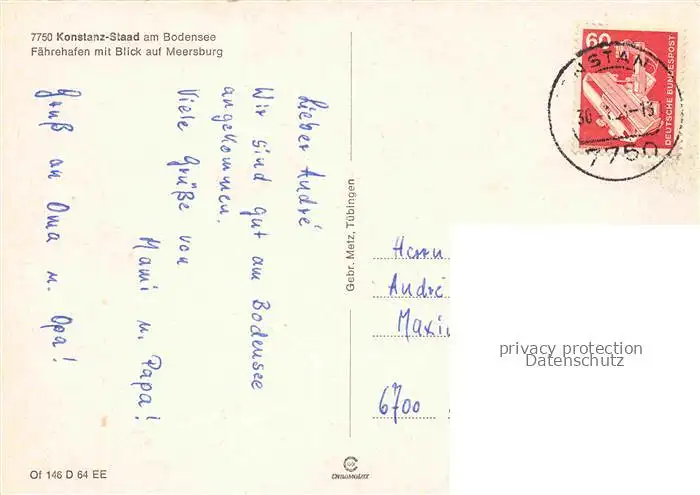 7750 Konstanz-Staad am Bodensee
Fährehafen mit Blick auf Meersburg
Lieber André
Wir sind gut am Bodensee
angekommen.
Viele Grüße von
Mami u. Papa!
Gruß an Oma u. Opa!
Gebr. Metz, Tübingen
60
DEUTSCHE BUNDESPOST
NSTAN
7750
Herrn
André
6700
privacy protection
Datenschutz
Of 146 D 64 EE